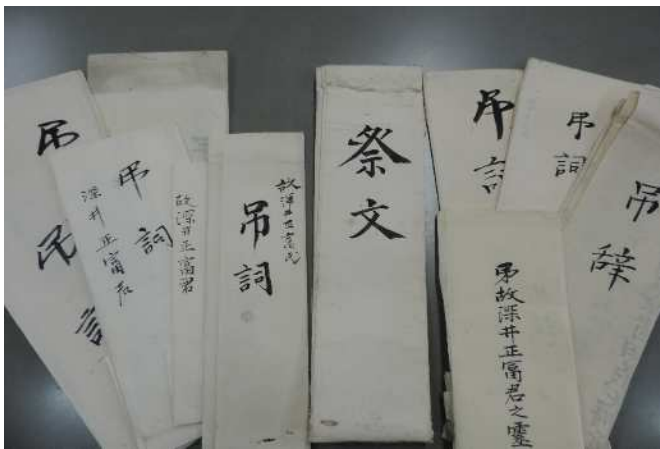 吊詞
深井正富君
故深井正富君
故深井正富氏
吊詞
祭文
吊詞
吊詞
吊辞
弔故深井正富君之靈